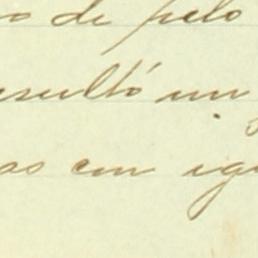 o de pelo
esultó un
as con ig